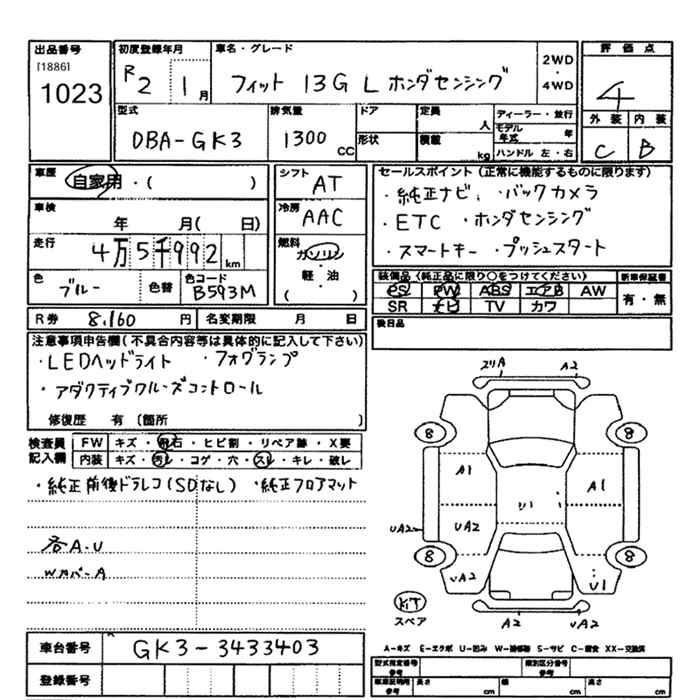 出品番号 初度登録年月 車名・グレード 2WD・4WD 評価点
[1886]
1023
R2 1月 フィット 13G L ホンダセンシング 4
型式 排気量 ドア 定員 人 ディーラー・並行 外装 内装
DBA-GK3 1300 CC 形状 積載 kg モデル年式 年 C B
ハンドル 左・右
車歴 自家用・( ) シフト AT セールスポイント(正常に機能するものに限ります)
・純正ナビ ・バックカメラ
車検 年 月( 日) 冷房 AAC ・ETC ・ホンダセンシング
走行 4万5千992km 燃料 ガソリン・軽・油 ( ) ・スマートキー ・プッシュスタート
色 ブルー 色替 色コード B593M
装備品(純正品に限り○をつけてください) 新車保証書
PS PW ABS エアB AW 有・無
SR ナビ TV カワ
R券 8,160円 名変期限 月 日 後日品
注意事項申告欄(不具合内容等は具体的に記入して下さい)
・LEDヘッドライト ・フォグランプ
・アダクティブクルーズコントロール
修復歴 有 〔箇所 〕
検査員記入欄 FW キズ・飛石・ヒビ割・リペア跡・X要
内装 キズ・汚レ・コゲ・穴・スレ・キレ・破レ
・純正前後ドラレコ(SDなし) ・純正フロアマット
各A・U
Wカバー A
ズリA A2
8 8
A1 A1
U1
UA2 UA2
8 8
UA2 U1
KIT
スペア
A2 UA2
車台番号 GK3-3433403
登録番号
A-キズ E-エクボ U-凹み W-補修跡 S-サビ C-腐食 XX-交換済
型式指定番号 参考 類別区分番号 参考
車車証明用 参考 長さ cm 幅 cm 高さ cm